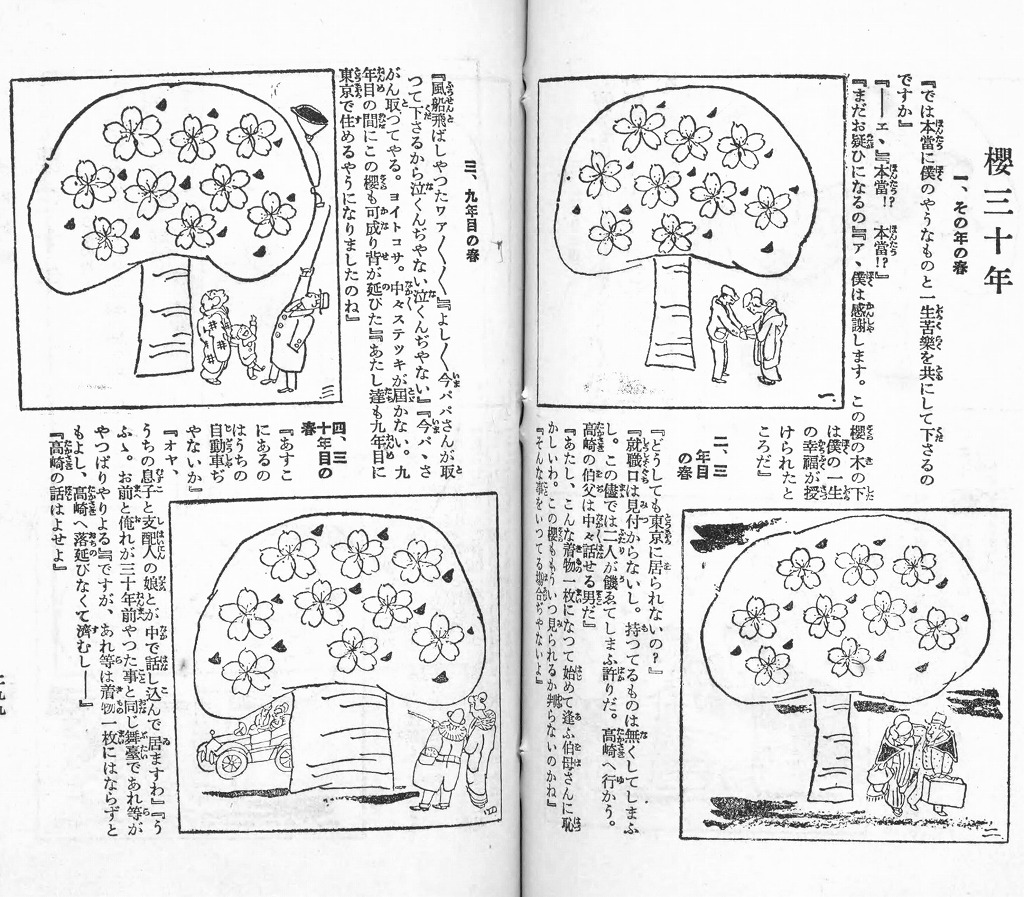 櫻三十年
一、その年の春
『では本當に僕のやうなものと一生苦樂を共にして下さるの
ですか』
『――エ、』『本當!?　本當!?』
『まだお疑ひになるの『ァ、僕は感謝します。この櫻の木の下
は僕の一生
の幸福が授
けられたと
ころだ』
一
二、三
年目
の春
『どうしても東京に居られないの?』
『就職口は見付からないし。持つてるものは無くしてしまふ
し。この儘では二人が饑ゑてしまふ許りだ。高崎へ行かう。
高崎の伯父は中々話せる男だ』
『あたし、こんな着物一枚になつて始めて逢ふ伯母さんに恥
かしいわ。この櫻ももういつ見られるか判らないのかね』
『そんな事をいつてる場合ぢやないよ』
二
三、九年目の春
『風船飛ばしやつたワァ〱〱〱』『よし〱〱今パパさんが取
つて下さるから泣くんぢやない泣くんぢやない』『今パ、さ
がん取つてやる。ヨイトコサ。中々ステツキが屆かない。九
年目の間にこの櫻も可成り背が延びた』『あたし達も九年目に
東京で住めるやうになりましたのね』
三
四、三
十年目の
春
『あすこ
にあるの
はうちの
自動車ぢ
やないか』
『オヤ、
うちの息子と支配人の娘とが中で話し込んで居ますわ』『う
ふゝ。お前と俺れが三十年前やつた事と同じ舞臺であれ等が
やつぱりやりよる』『ですが、あれ等は着物一枚にはならずと
もよし、高崎へ落延びなくて濟むし――』
『高崎の話はよせよ』
四
二九九